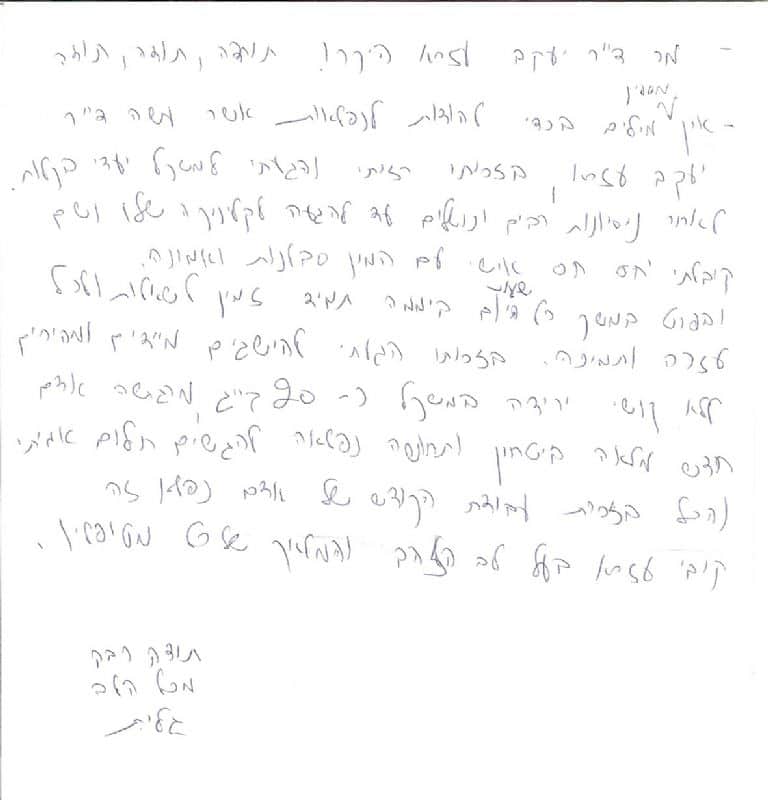 - מר ד"ר יעקב עזרא היקר! תודה, תודה, תודה
מספיק
- אין מילים בכדי להודות לנפלאות אשר עשה ד"ר
יעקב עזרא, בזכותו רזיתי והגעתי למשקל יעדי בקלות.
לאחר ניסיונות רבים וכושלים עד להגעה לקליניקה שלו ושם
קיבלתי יחס חם אישי עם המון סבלנות ואמונה.
שעות
ובפרט במשך כל היום ביממה תמיד זמין לשאלות ולכל
עזרה ותמיכה. בזכותו הגעתי להישגים מיידים ומהירים
ללא קושי ירידה במשקל כ- 20 ק"ג, מרגישה אדם
חדש מלאה ביטחון ותחושה נפלאה להגשים חלום אמיתי
והכל בזכות עבודת הקודש של אדם נפלא זה
קובי עזרא בעל לב הזהב והמלאך של מטופליו.
תודה רבה
מכל הלב
גלית